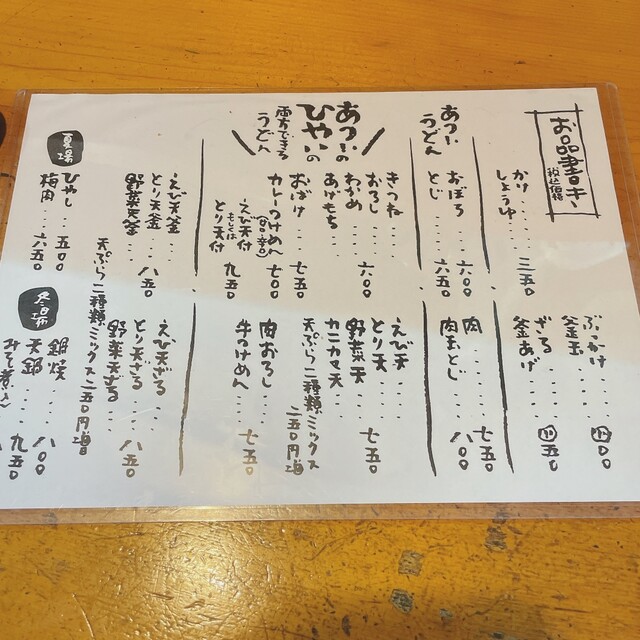 お品書キ
税込価格
かけ
しょうゆ‥‥三五〇
ぶっかけ
釜玉‥‥四〇〇
ざる
釜あげ‥‥四五〇
あつ〜い
うどん
おぼろ‥‥六〇〇
とじ‥‥六五〇
肉‥‥七五〇
肉玉とじ‥‥八〇〇
あつ〜いの
ひやいの
両方できる
うどん
きつね
おろし
わかめ
あげもち‥‥六〇〇
おばけ‥‥七五〇
カレーつけめん‥‥七〇〇
えび天付
もしくは
とり天付‥‥九五〇
えび天
とり天
野菜天
カニカマ天‥‥七五〇
天ぷら二種類ミックス二五〇円増
肉おろし
牛つけめん‥‥七五〇
えび天釜
とり天釜
野菜天釜‥‥八五〇
えび天ざる
とり天ざる
野菜天ざる‥‥八五〇
天ぷら二種類ミックス二五〇円増
夏場
ひやし‥‥五〇〇
梅肉‥‥六五〇
冬場
鍋焼‥‥八〇〇
天鍋‥‥九五〇
みそ煮